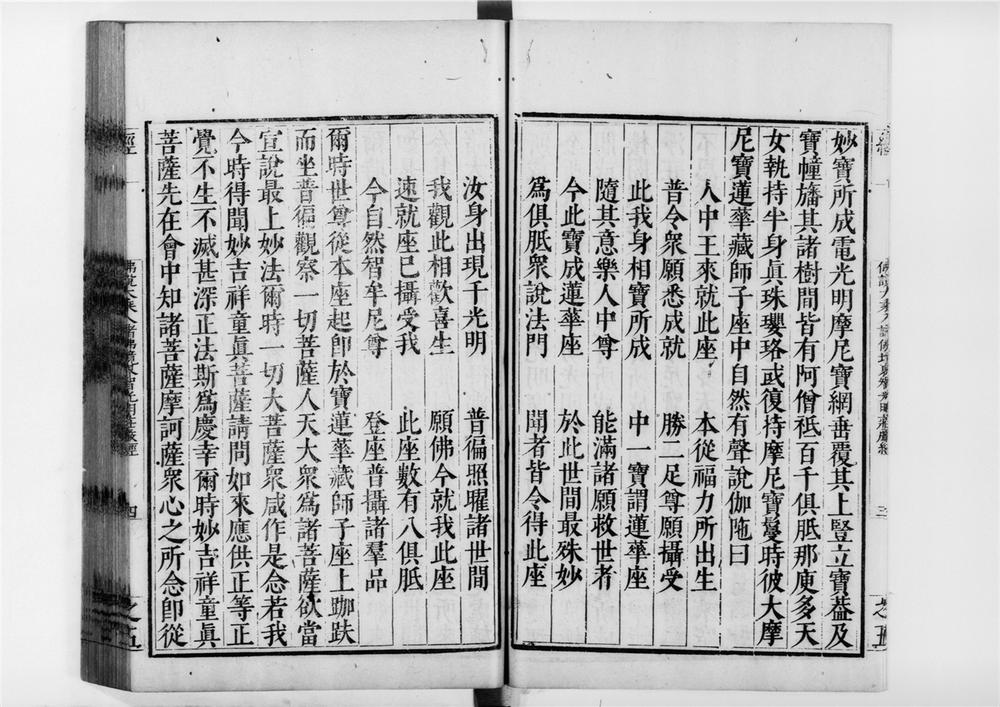 妙寶所成電光明摩尼寶網垂覆其上豎立寶葢及
寶幢旛其諸樹間皆有阿僧祇百千俱胝那庾多天
女執持半身真珠瓔珞或復持摩尼寶鬘時彼大摩
尼寶蓮華藏師子座中自然有聲說伽陁曰
人中王來就此座　本從福力所出生
普令衆願悉成就　勝二足尊願攝受
此我身相寶所成　中一寶謂蓮華座
隨其意樂人中尊　能滿諸願救世者
今此寶成蓮華座　於此世間最殊妙
爲俱胝衆說法門　聞者皆令得此座
汝身出現千光明　普徧照曜諸世間
我觀此相歡喜生　願佛今就我此座
速就座已攝受我　此座數有八俱胝
今自然智牟尼尊　登座普攝諸羣品
爾時世尊從本座起卽於寶蓮華藏師子座上跏趺
而坐普徧觀察一切菩薩人天大衆爲諸菩薩欲當
宣說最上妙法爾時一切大菩薩衆咸作是念若我
今時得聞妙吉祥童真菩薩請問如來應供正等正
覺不生不滅甚深正法斯爲慶幸爾時妙吉祥童真
菩薩先在會中知諸菩薩摩訶薩衆心之所念卽從
經
四
之五